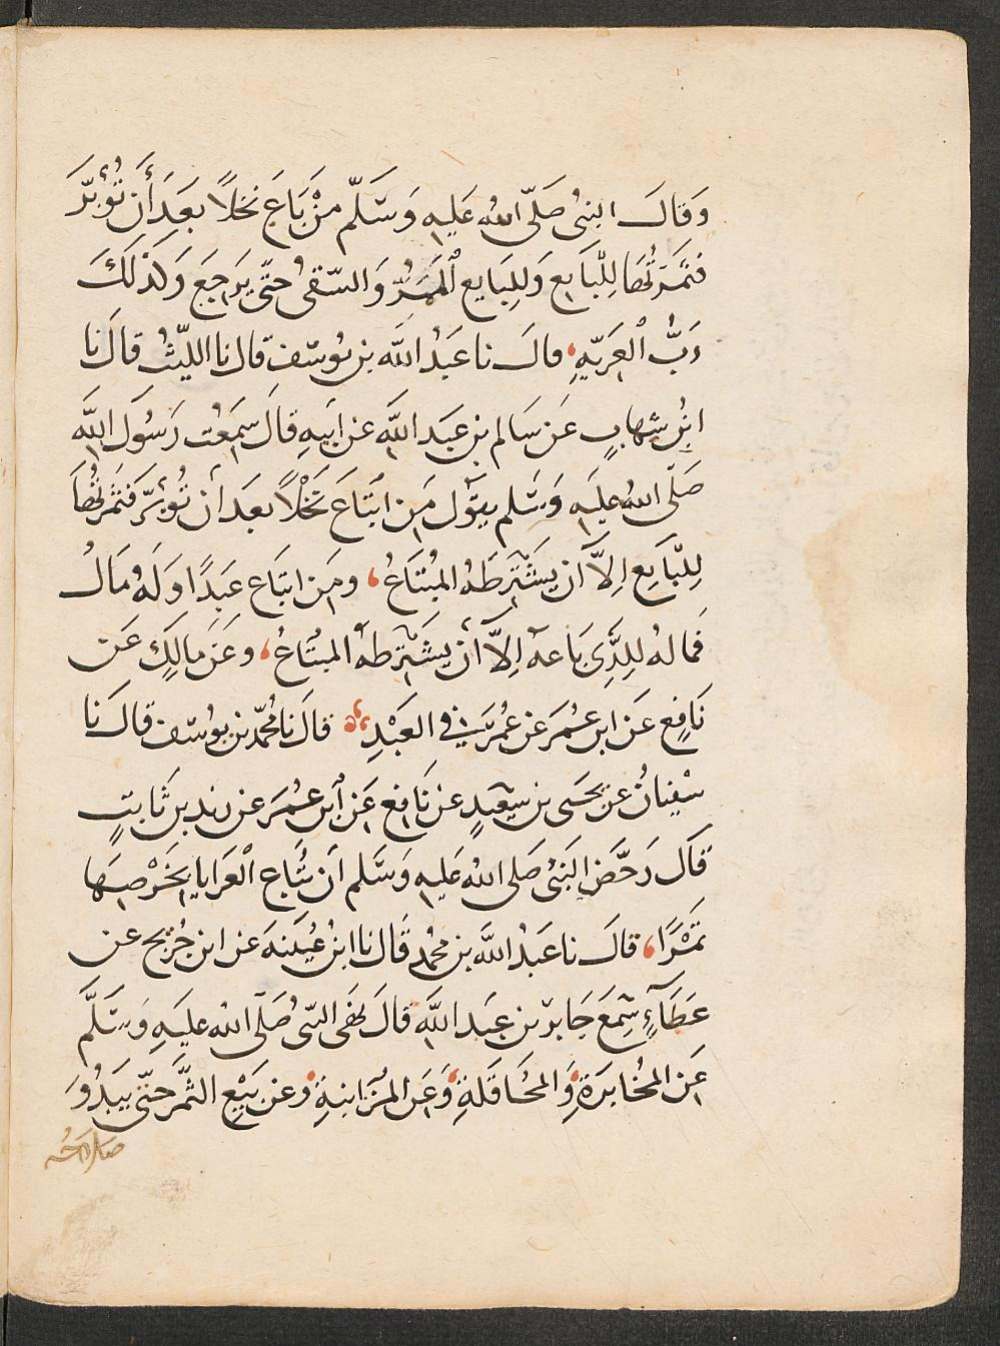 وَقَالَ النبىُ صَلّى اللهُ عَليهِ وَسَلّم مَنْ بَاعَ نخلاً بعدَ أَن تُؤَبّرَ
فثمَرَتُهَا لِلبَّايع وَلِلبَايع الْمَمَرُّ وَالسّقىُ حتّى يَرجعَ وَكذَلكَ
رَبُّ الْعَرِيّهِ، قالَ نا عَبدُ الله بن يوسف قال نا الليّثُ قالَ نا
ابنُ شِهابٍ عَن سَالم بن عَبد الله عن ابيهِ قالَ سمعْت رَسُولَ الله
صَلّى اللهُ عليهِ وَسَلم يقول مَن ابْتاعَ نَخْلاً بعدَ أن تُؤبّرَ فثمَرتُها
لِلبَّايع اِلاَّ أن يشترطَهُ المُبْتَاعُ، ومَن ابتَاع عَبدًا وَلَهُ مَالُ
فمالهُ لِلذِى بَاعهُ اِلاّ أنْ يشتَرطهُ المبْتاعُ، وعَن مالِكٍ عَن
نَافعٍ عَن ابن عُمَرَ عن عُمرَ في العَبْدِ، قالَ نا مُحَمّد بن يوسف قالَ نا
سُفيانُ عن يحيَى بن سعيدٍ عن نَافع عَن ابن عُمَرَ عن زيد بن ثابتٍ
قالَ رَخّصَ النبَىُ صَلى اللهُ عَليهِ وَسَلم ان تُبَاع الْعَرايا بخَرْصِهَا
تَمْرًا، قالَ نا عَبدُ الله بن محمدٍ قالَ نا ابنُ عُيَينَةَ عن ابن جُرَيج عن
عَطَاءٍ سَمِعَ جَابرَ بن عبد الله قالَ نَهَى النبّىُ صَلّى اللهُ عليهِ وَسَلَّم
عَن المُخَابَرَةِ وَالمحَاقَلَةِ وَعَن المزَابنةِ وعن بَيْع الثَّمَر حتّى يبدُوَ
صلاحُه